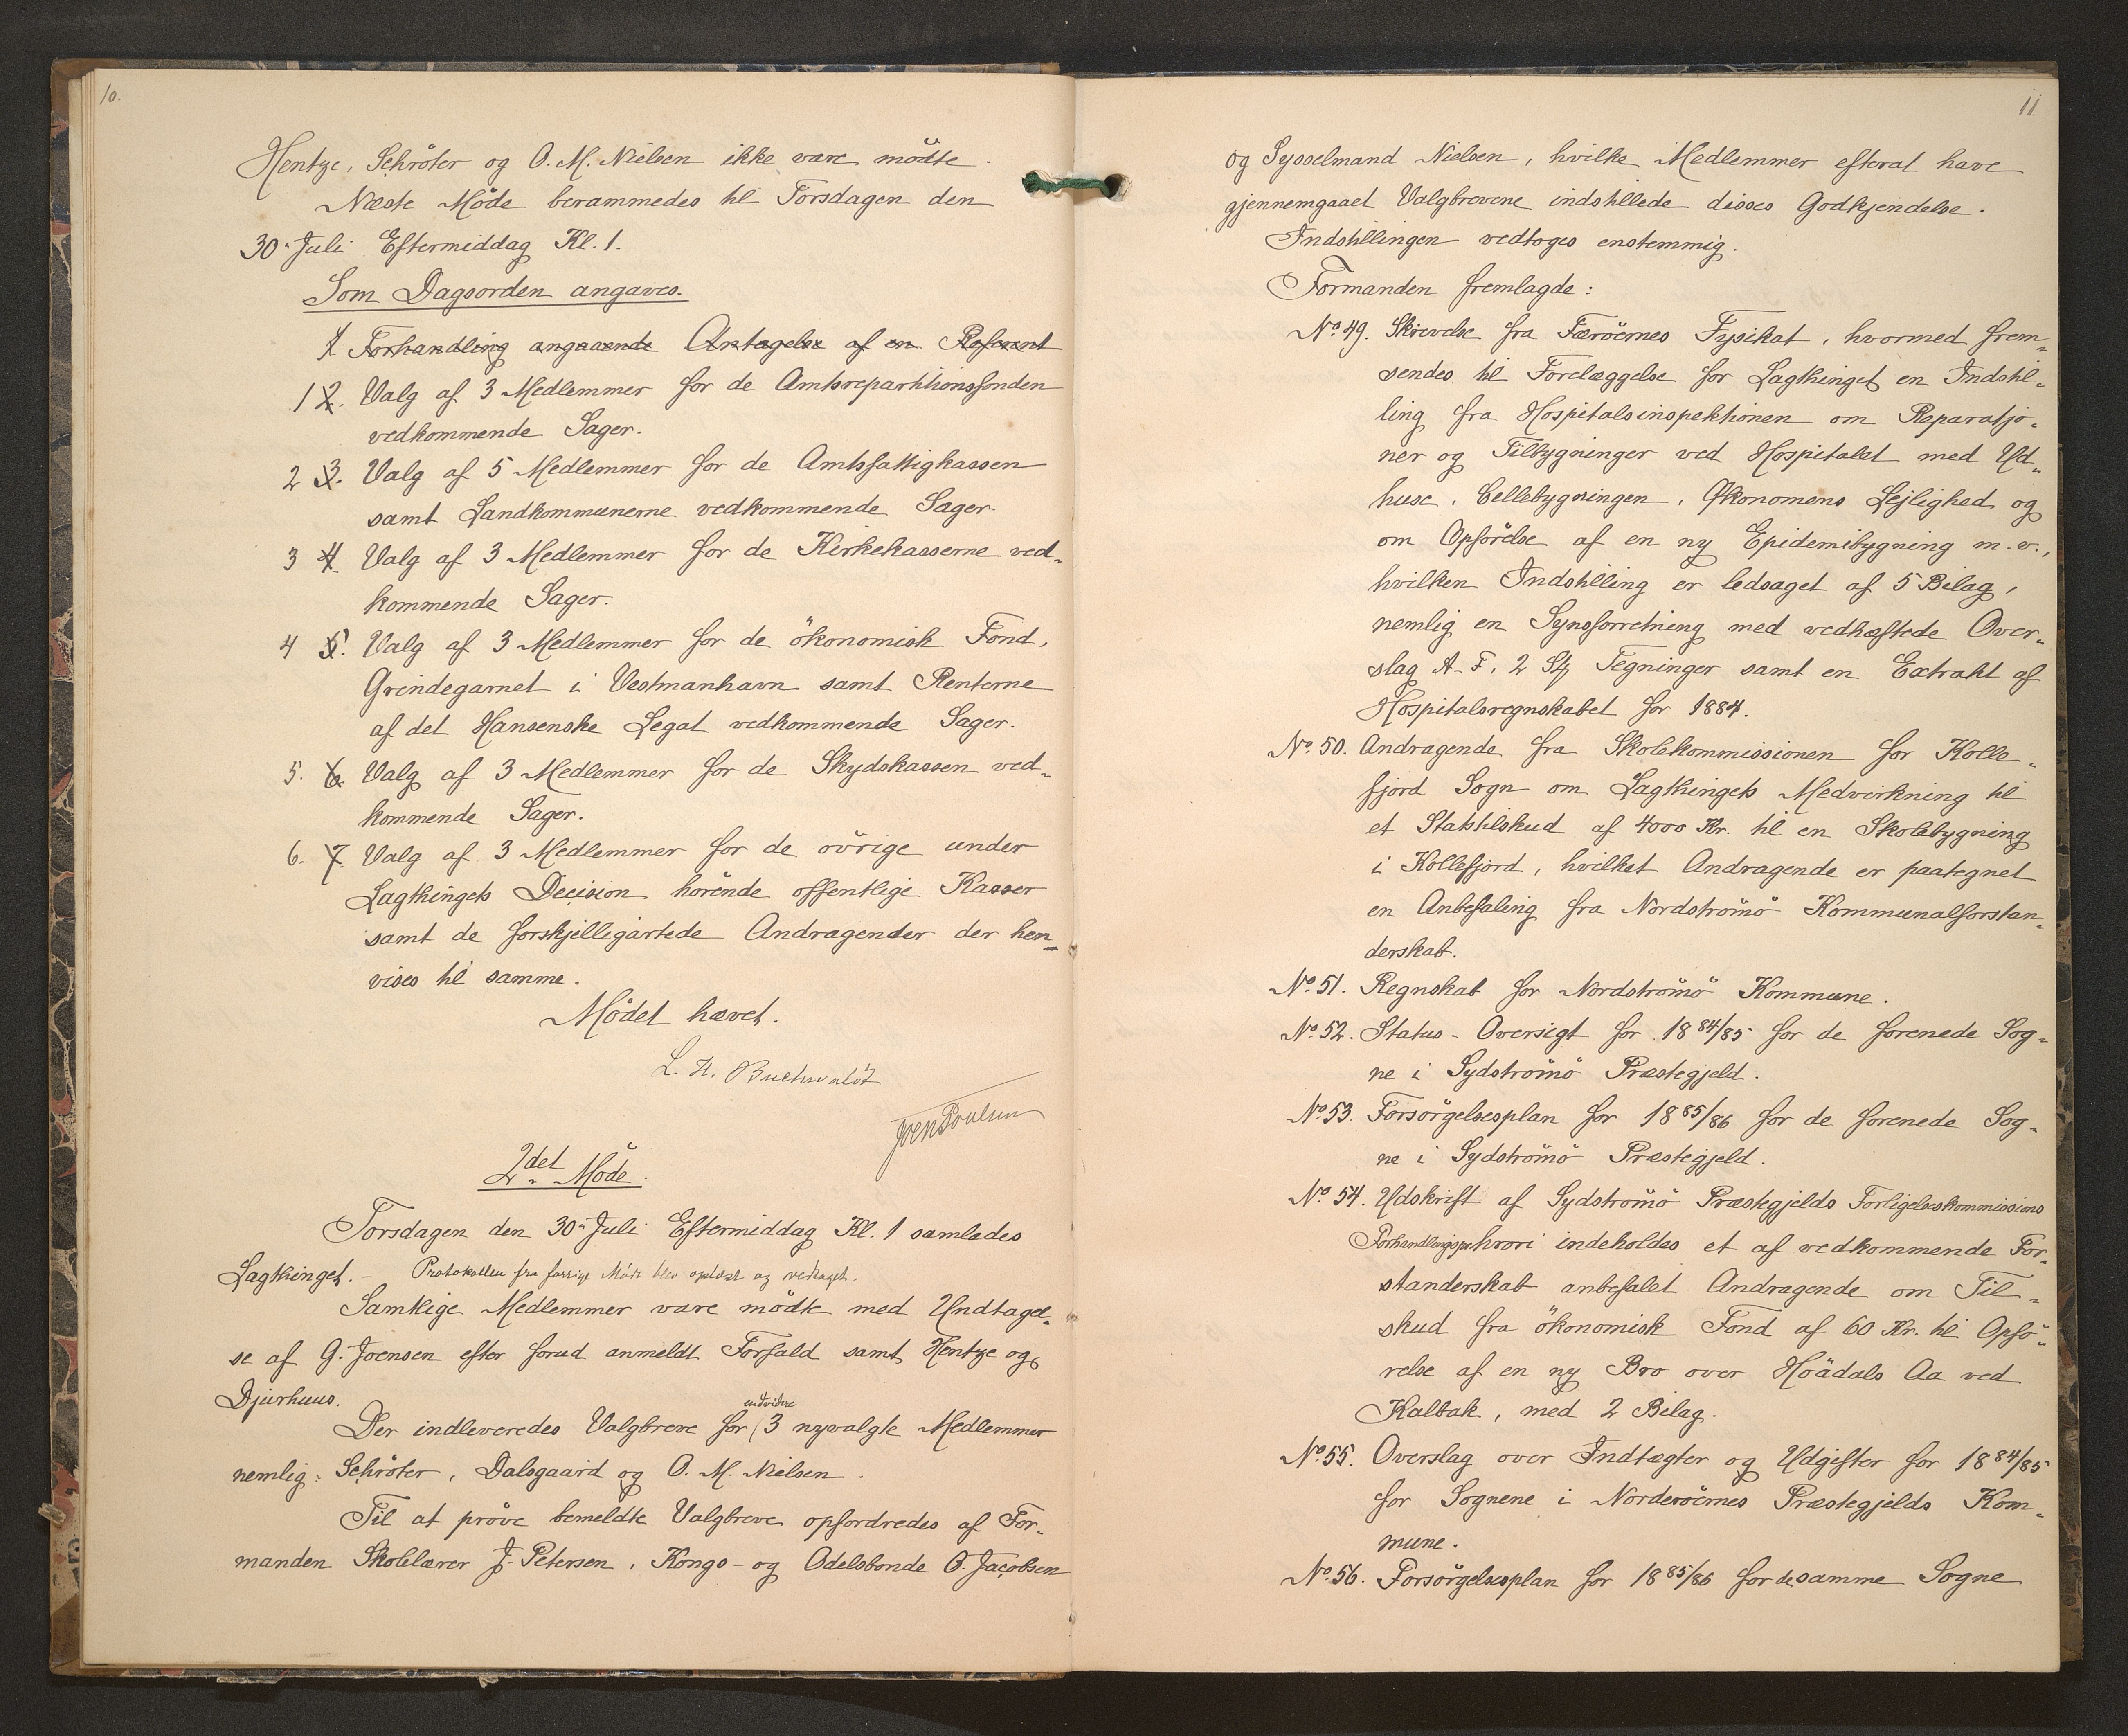 10.
Hentze, Schröter og O. M. Nielsen ikke vare mödte.
Næste Möde berammedes til Torsdagen den
30. Juli Eftermiddag Kl. 1.
Som Dagsorden angaves.
1. Forhandling angaaende Antagelse af en Referent
1 2. Valg af 3 Medlemmer for de Amtsrepartitionsfonden
vedkommende Sager.
2 3. Valg af 5 Medlemmer for de Amtsfattigkassen
samt Landkommunerne vedkommende Sager.
3 4. Valg af 3 Medlemmer for de Kirkekasserne ved-
kommende Sager.
4 5. Valg af 3 Medlemmer for de ökonomisk Fond,
Grindegarnet i Vestmanhavn samt Renterne
af det Hansenske Legat vedkommende Sager.
5. 6. Valg af 3 Medlemmer for de Skydskassen ved-
kommende Sager.
6. 7. Valg af 3 Medlemmer for de övrige under
Lagthingets Decision hörende offentlige Kasser
samt de forskjelligartede Andragender der hen-
vises til samme.
Mödet hævet.
L. H. Buchwaldt
Joen Poulsen
2det Möde.
Torsdagen den 30. Juli Eftermiddag Kl. 1 samledes
Lagthinget. - Protokollen fra forrige Möde blev oplæst og vedtaget.
Samtlige Medlemmer vare mödte med Undtagel-
se af G. Joensen efter forud anmeldt Forfald samt Hentze og
Djurhuus.
endvidere
Der indleveredes Valgbreve for 3 nyvalgte Medlemmer
nemlig: Schröter, Dalsgaard og O. M. Nielsen.
Til at pröve bemeldte Valgbreve opfordredes af For-
manden Skolelærer J. Petersen, Kongs- og Odelsbonde O. Jacobsen
11
og Sysselmand Nielsen, hvilke Medlemmer efterat have
gjennemgaaet Valgbrevene indstillede disses Godkjendelse.
Indstillingen vedtoges enstemmig.
Formanden fremlagde:
No. 49. Skrivelse fra Færöernes Fysikat, hvormed frem-
sendes til Forelæggelse for Lagthinget en Indstil-
ling fra Hospitalsinspektionen om Reparatjo-
ner og Tilbygninger ved Hospitalet med Ud-
huse, Cellebygningen, Økonomens Lejlighed og
om Opförelse af en ny Epidemibygning m. v.,
hvilken Indstilling er ledsaget af 5 Bilag,
nemlig en Synsforretning med vedhæftede Over-
slag A-F, 2 Stk Tegninger samt en Extrakt af
Hospitalsregnskabet for 1884.
No. 50. Andragende fra Skolekommissionen for Kolle-
fjord Sogn om Lagthingets Medvirkning til
et Statstilskud af 4000 Kr. til en Skolebygning
i Kollefjord, hvilket Andragende er paategnet
en Anbefaling fra Nordströmö Kommunalforstan-
derskab.
No. 51. Regnskab for Nordströmö Kommune.
No. 52. Status-Oversigt for 1884/85 for de forenede Sog-
ne i Sydströmö Præstegjeld.
No. 53. Forsörgelsesplan for 1885/86 for de forenede Sog-
ne i Sydströmö Præstegjeld.
No. 54. Udskrift af Sydströmö Præstegjelds Forligelseskommissions
Forhandlingspr hvori indeholdes et af vedkommende For-
standerskab anbefalet Andragende om Til-
skud fra ökonomisk Fond af 60 Kr. til Opfö-
relse af en ny Bro over Höädals Aa ved
Kalbak, med 2 Bilag.
No. 55. Overslag over Indtægter og Udgifter for 1884/85
for Sognene i Norderöernes Præstegjelds Kom-
mune.
No. 56. Forsörgelsesplan for 1885/86 for de samme Sogne